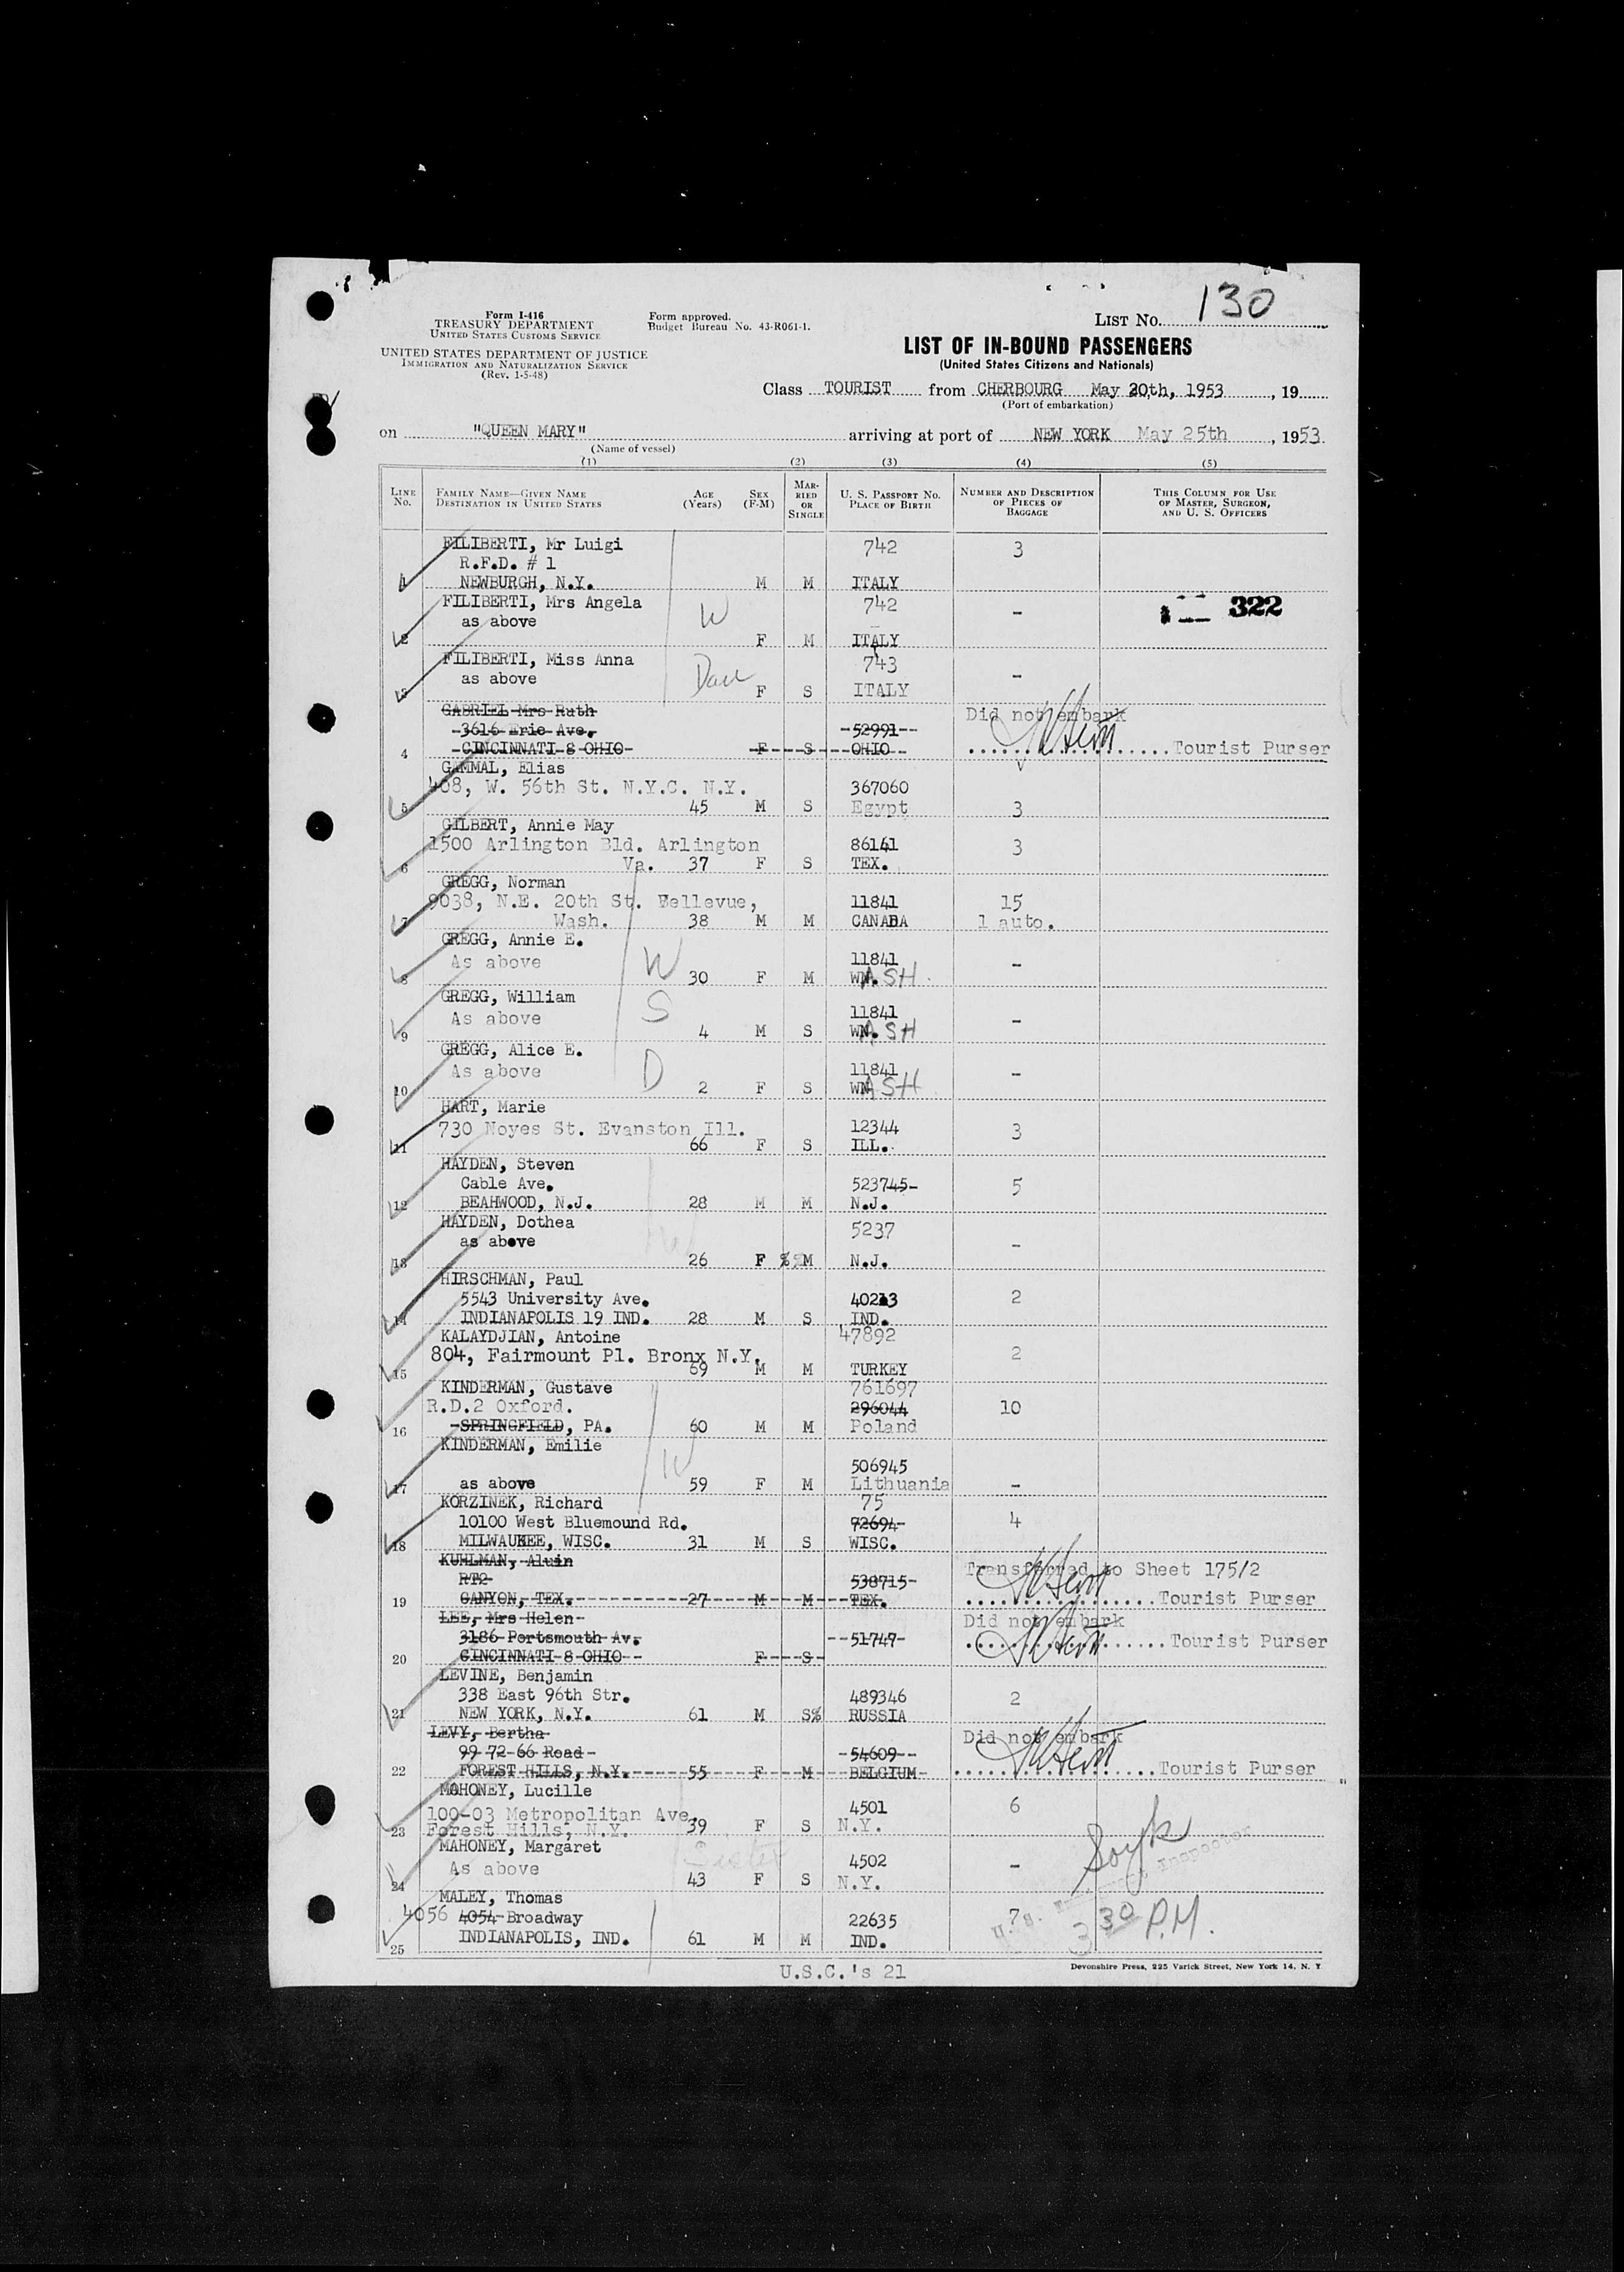 130
Form I-416
TREASURY DEPARTMENT
UNITED STATES CUSTOMS SERVICE
UNITED STATES DEPARTMENT OF JUSTICE
IMMIGRATION AND NATURALIZATION SERVICE
(Rev. 1-5-48)
Form approved.
Budget Bureau No. 43-R061-1.
LIST No.
LIST OF IN-BOUND PASSENGERS
(United States Citizens and Nationals)
Class TOURIST from CHERBOURG May 20th, 1953, 19
(Port of embarkation)
on "QUEEN MARY" arriving at port of NEW YORK May 25th, 1953
(Name of vessel)
(1) (2) (3) (4) (5)
LINE No. FAMILY NAME—GIVEN NAME DESTINATION IN UNITED STATES AGE (Years) SEX (F-M) MARRIED OR SINGLE U. S. PASSPORT No. PLACE OF BIRTH NUMBER AND DESCRIPTION OF PIECES OF BAGGAGE THIS COLUMN FOR USE OF MASTER, SURGEON, AND U. S. OFFICERS
FILIBERTI, Mr Luigi 742 3
R.F.D. # 1
1 NEWBURGH, N.Y. M M ITALY
FILIBERTI, Mrs Angela W 742 - 322
as above
2 F M ITALY
FILIBERTI, Miss Anna 743
as above Dau -
3 F S ITALY
GABRIEL Mrs Ruth Did not embark
3616 Erie Ave. 52991
4 CINCINNATI 8 OHIO F S OHIO Tourist Purser
GAMMAL, Elias
408, W. 56th St. N.Y.C. N.Y. 367060
5 45 M S Egypt 3
GILBERT, Annie May
1500 Arlington Bld. Arlington 86141 3
6 Va. 37 F S TEX.
GREGG, Norman
9038, N.E. 20th St. Bellevue, 11841 15
7 Wash. 38 M M CANADA 1 auto.
GREGG, Annie E.
As above W 11841 -
8 30 F M WASH.
GREGG, William
As above S 11841 -
9 4 M S WASH
GREGG, Alice E.
As above D 11841 -
10 2 F S WASH
HART, Marie
730 Noyes St. Evanston Ill. 12344 3
11 66 F S ILL.
HAYDEN, Steven
Cable Ave. 523745 5
12 BEAHWOOD, N.J. 28 M M N.J.
HAYDEN, Dothea 5237
as above W -
13 26 F M N.J.
HIRSCHMAN, Paul
5543 University Ave. 40213 2
14 INDIANAPOLIS 19 IND. 28 M S IND.
KALAYDJIAN, Antoine 47892
804, Fairmount Pl. Bronx N.Y. 2
15 69 M M TURKEY
KINDERMAN, Gustave 761697
R.D.2 Oxford. 296044 10
16 SPRINGFIELD, PA. 60 M M Poland
KINDERMAN, Emilie
W 506945
17 as above 59 F M Lithuania -
KORZINEK, Richard 75
10100 West Bluemound Rd. 92694 4
18 MILWAUKEE, WISC. 31 M S WISC.
KUHLMAN, Aluin Transferred to Sheet 175/2
RT2 538715
19 CANYON, TEX. 27 M M TEX. Tourist Purser
LEE, Mrs Helen Did not embark
3186 Portsmouth Av. 51747 Tourist Purser
20 CINCINNATI 8 OHIO F S
LEVINE, Benjamin
338 East 96th Str. 489346 2
21 NEW YORK, N.Y. 61 M S% RUSSIA
LEVY, Bertha Did not embark
99-72-66 Road 54609
22 FOREST HILLS, N.Y. 55 F M BELGIUM Tourist Purser
MAHONEY, Lucille
100-03 Metropolitan Ave. 4501 6
23 Forest Hills, N.Y. 39 F S N.Y.
MAHONEY, Margaret Sister
As above 4502 -
24 43 F S N.Y.
MALEY, Thomas
4056 4054 Broadway 22635 7
25 INDIANAPOLIS, IND. 61 M M IND.
U.S. Inspector
3 30 P.M.
U.S.C.'s 21
Devonshire Press, 225 Varick Street, New York 14, N. Y.